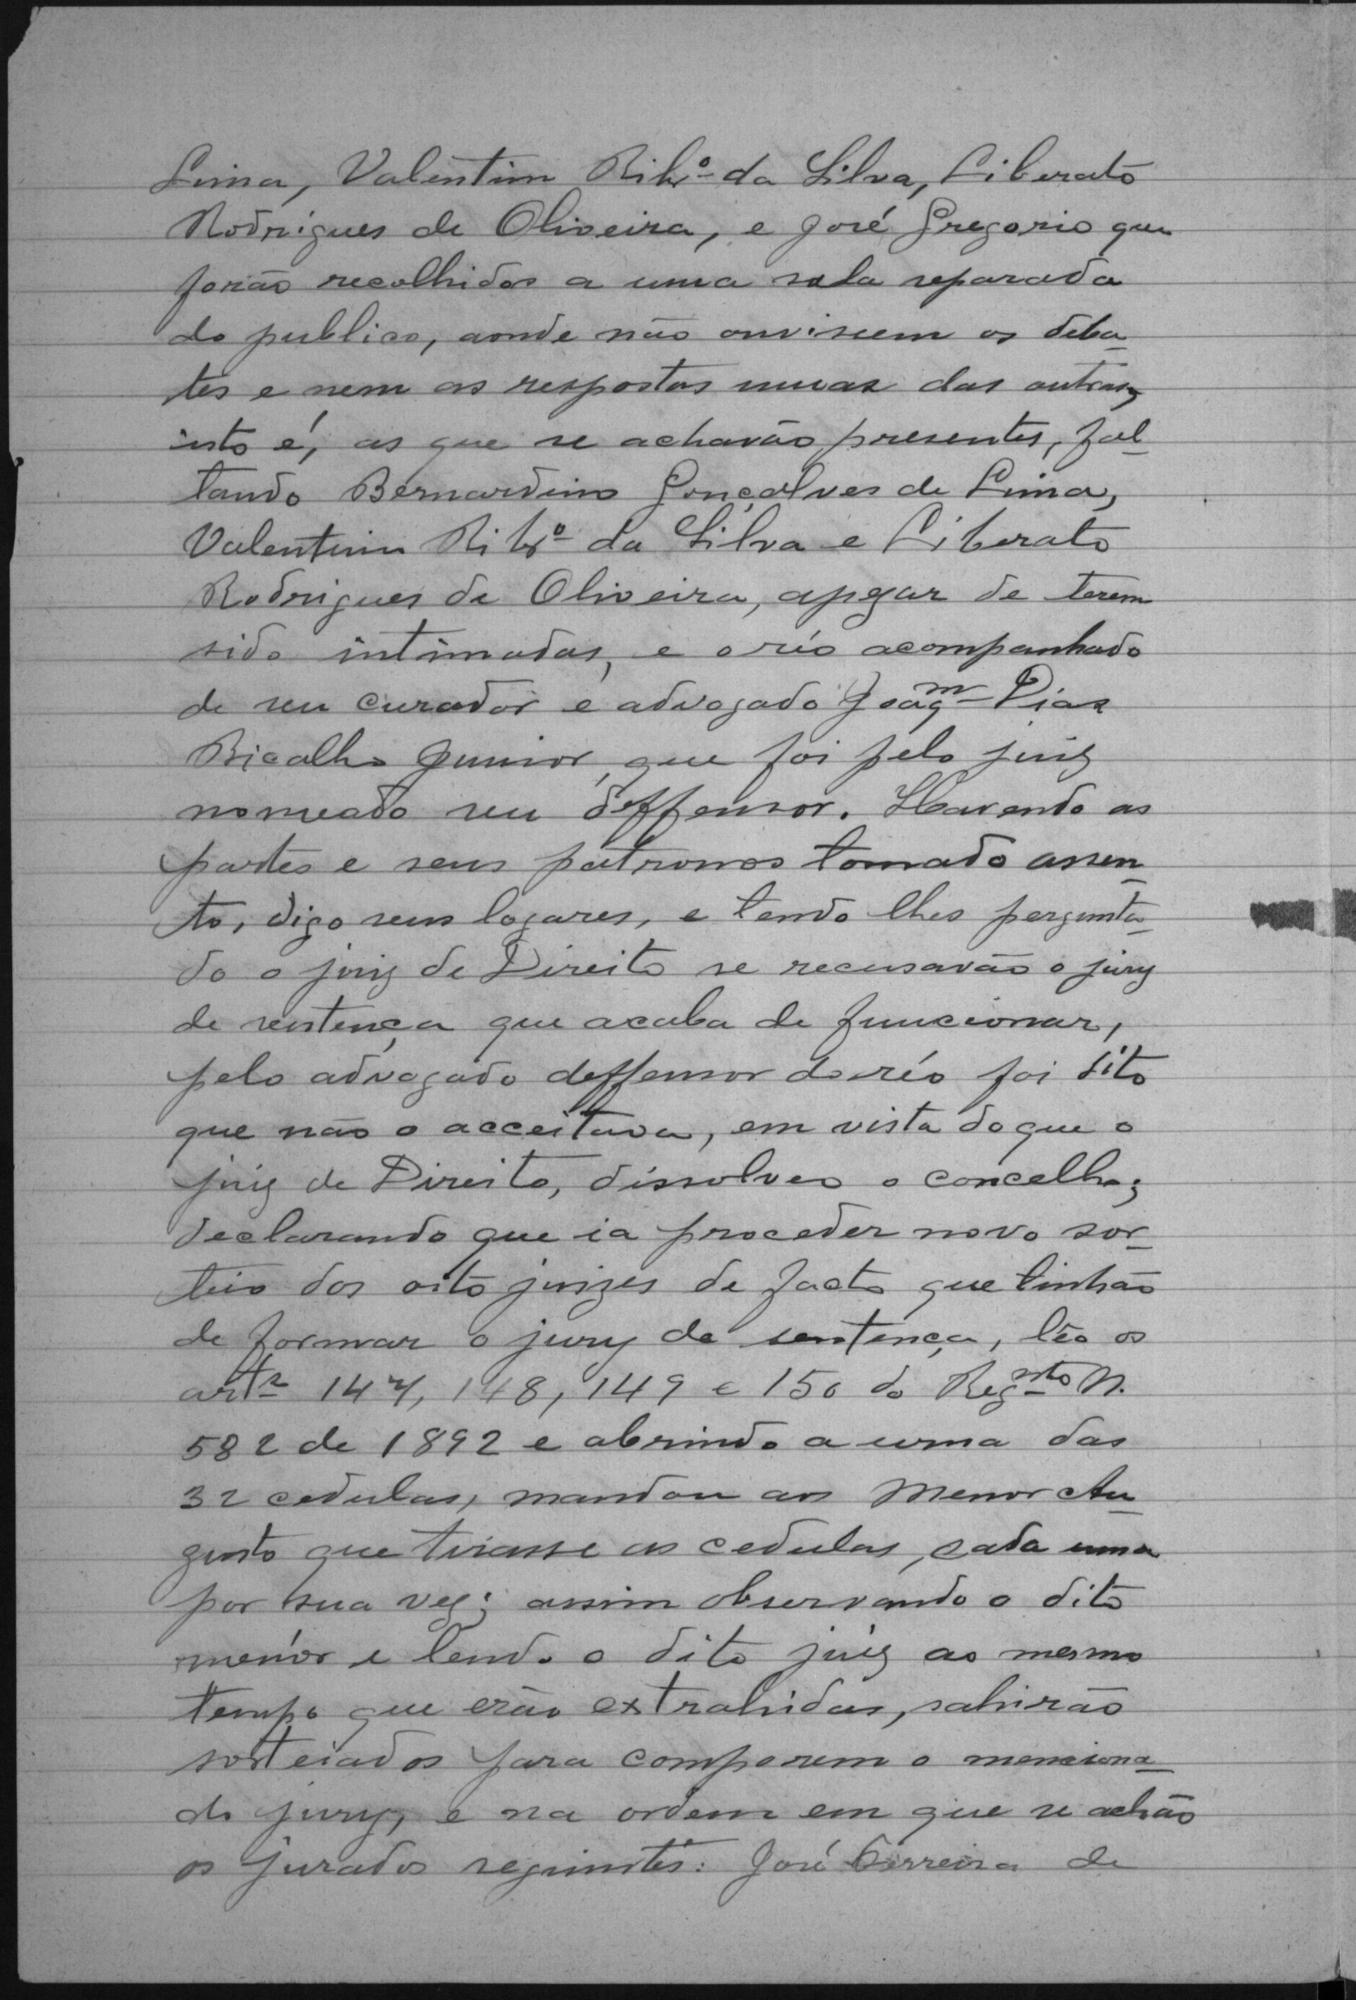 Lima, Valentim Ribrº da Silva, Liberato
Rodrigues de Oliveira, e José Gregorio que
forão recolhidos a uma sala separada
do publico, aonde não ouvissem os deba-
tes e nem as respostas umas das outras,
isto é, as que se achavão presentes, fal-
tando Bernardino Gonçalves de Lima,
Valentim Ribrº da Silva e Liberato
Rodrigues de Oliveira, apezar de terem
sido intimadas, e o réo acompanhado
de seu curador e advogado Joaqm Dias
Bicalho Junior, que foi pelo juiz
nomeado seu deffensor. Havendo as
partes e seus patronos tomado assen-
to, digo seus logares, e tendo lhes pergunta-
do o juiz de Direito se recusavão o jury
de sentença que acaba de funccionar,
pelo advogado deffensor do réo foi dito
que não o acceitava, em vista do que o
juiz de Direito, dissolveo o concelho;
declarando que ia proceder novo sor-
teio dos oito juizes de facto que tinhão
de formar o jury de sentença, lêo os
arts 147, 148, 149 e 150 do Regmto N.
582 de 1892 e abrindo a urna das
32 cedulas, mandou ao Menor Au-
gusto que tirasse as cedulas, cada uma
por sua vez; assim observando o dito
menór e lendo o dito juiz ao mesmo
tempo que erão extrahidas, sahirão
sorteiados para comporem o menciona-
do jury, e na ordem em que se achão
os jurados seguintes: José Ferreira de